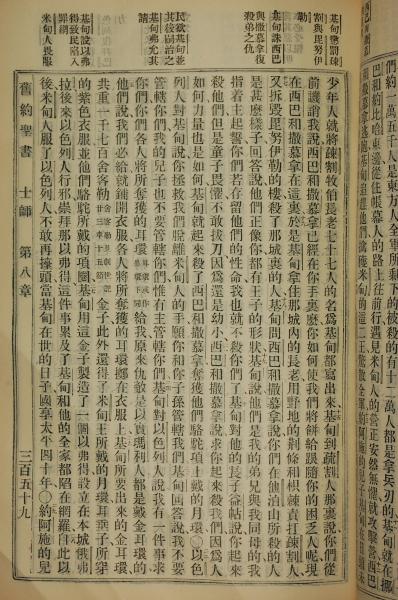 們約一萬五千人是東方人全軍所剩下的被殺的有十二萬人都是拿兵刃的基甸就在挪
巴和約比哈東邊從住帳幕人的路上往前行遇見米甸人的營正安然無懼就攻擊營西巴
基甸譽罰疎
割與毘努伊
勒
基甸誅西巴
與撒慕拿復
殺弟之仇
民欲基甸並
其後嗣治之
基甸弗允其
請
基甸設以弗
得致民陷入
罪網
米甸人畏服
少年人就將疎割牧伯長老七十七人的名爲基甸都寫出來基甸到疏割人那裏說你們從
前譏誚我說西巴和撒慕拿已經在你手裏麼你如何使我們將餅給跟隨你的困乏人呢現
在西巴和撒慕拿在這裏於是基甸拿住那城內的長老用野地的荆條和枳棘責打疎割人
又拆毀毘努伊勒的樓殺了那城裏的人基甸問西巴和撒慕拿說你們在他泊山所殺的人
是甚麼樣子回答說他們正像你都有王子的形狀基甸說他們是我的弟兄與我同母的我
指着主起誓你們若存留他們的性命我也就不殺你們了基甸對他的長子益帖說你起來
殺他們但是童子畏懼不敢拔刀因爲還是幼小西巴和撒慕拿說求你起來殺我們因爲人
如何力量也是如何基甸就起來殺了西巴和撒慕拿奪獲他們駱駝項上戴的月環〇以色
列人對基甸說你拯救我們脫離米甸人的手願你和你子孫管轄我們基甸回答說我不要
管轄你們我的兒子也不要管轄你們惟有主管轄你們基甸對以色列人說我有一件事求
你們你們各人將所奪獲的耳環給我原來仇敵是以實瑪列人都是戴金耳環的
他們說我們必給就鋪開衣服各人將所奪獲的耳環擲在衣服上基甸所要出來的金耳環
共重一千七百舍客勒金子此外還得了米甸王所戴的月環耳垂子所穿
的紫色衣服並他們駱駝所戴的項圈基甸用這金子製造了一個以弗得設立在本城俄弗
拉後來以色列人行邪崇拜那以弗得這件事累及了基甸和他的全家都陷在網羅自此以
後米甸人服了以色列人不敢再擡頭當基甸在世的日子國享太平四十年〇約阿施的兒
舊約聖書 士師 第八章 三百五十九